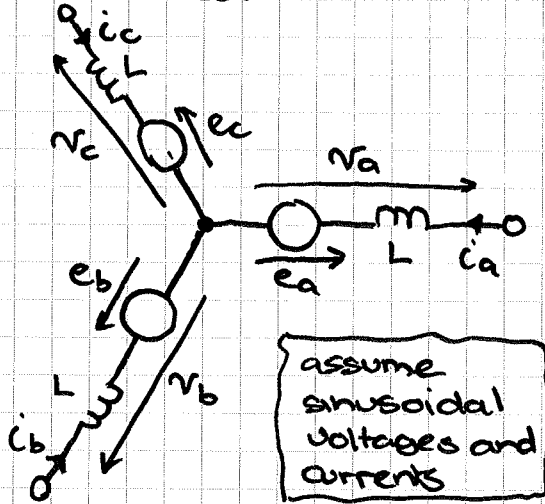 ic
L
ec
vc
va
L
ia
ea
eb
L
vb
ib
assume
sinusoidal
voltages and
currents